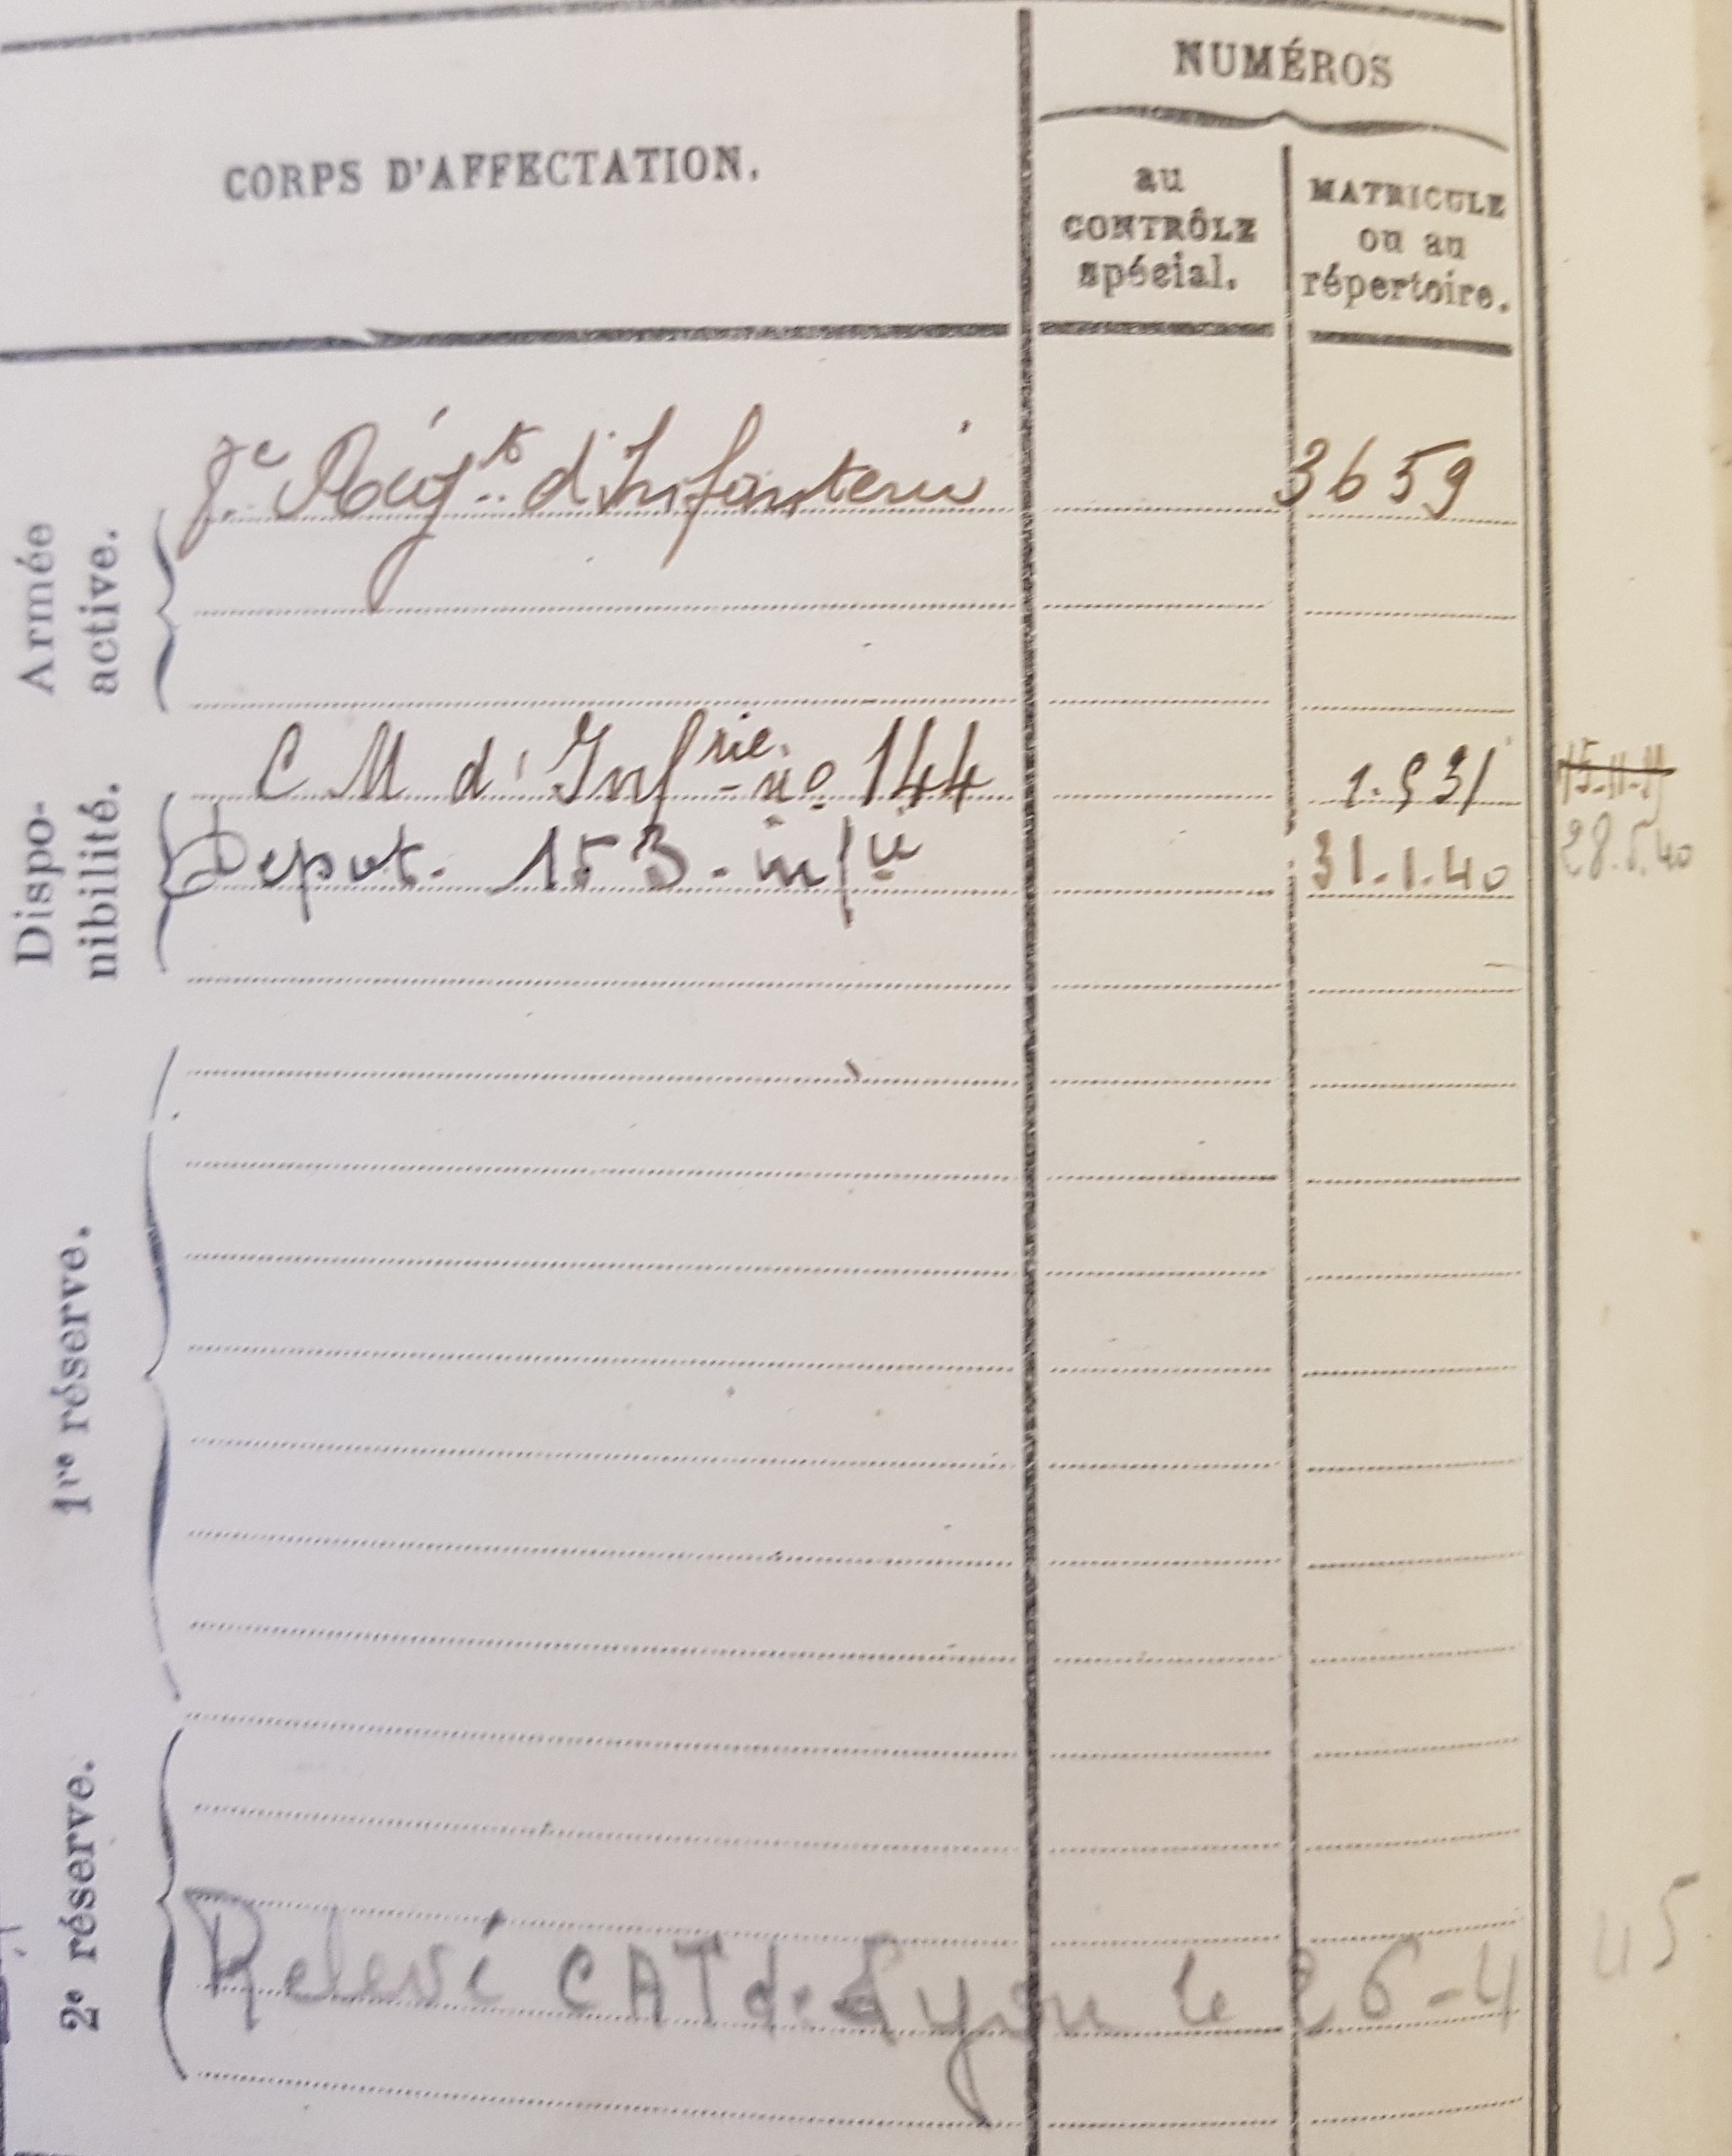 NUMÉROS
CORPS D'AFFECTATION.
au
CONTRÔLE
spécial.
MATRICULE
ou au
répertoire.
Armée
active.
Régt d'Infanterie
3659
Dispo-
nibilité.
C M d'Infrie. - no 144
Depot. 153. infie
31.1.40
28.5.40
1re réserve.
2e réserve.
Relevé CAT de Lyon le 26-4 45